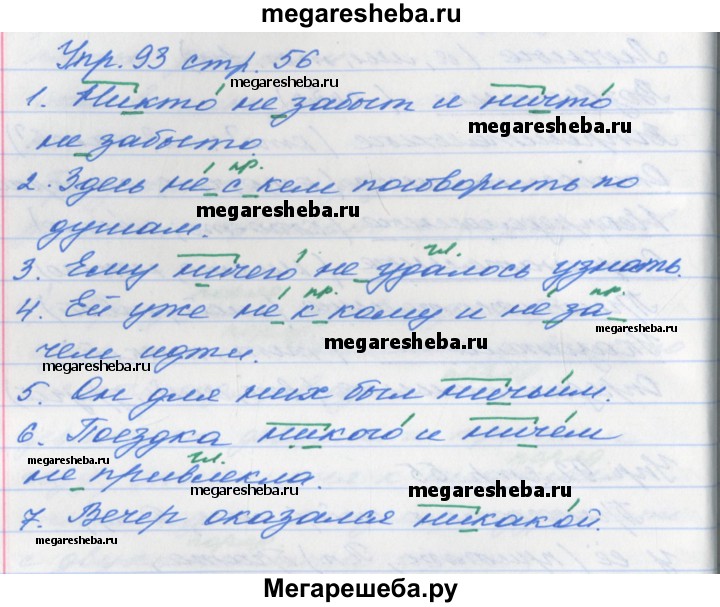 megaresheba.ru
Упр. 93 стр. 56
megaresheba.ru
1. Никто не забыт и ничто
megaresheba.ru
не забыто.
2. Здесь не с кем поговорить по
пр.
megaresheba.ru
душам.
3. Ему ничего не удалось узнать.
гл.
4. Ей уже не к кому и не за
пр. пр.
megaresheba.ru
megaresheba.ru
чем идти.
megaresheba.ru
5. Он для них был ничьим.
6. Поездка никого и ничем
не привлекла.
гл.
megaresheba.ru
megaresheba.ru
7. Вечер оказался никакой.
megaresheba.ru
Мегарешеба.ру